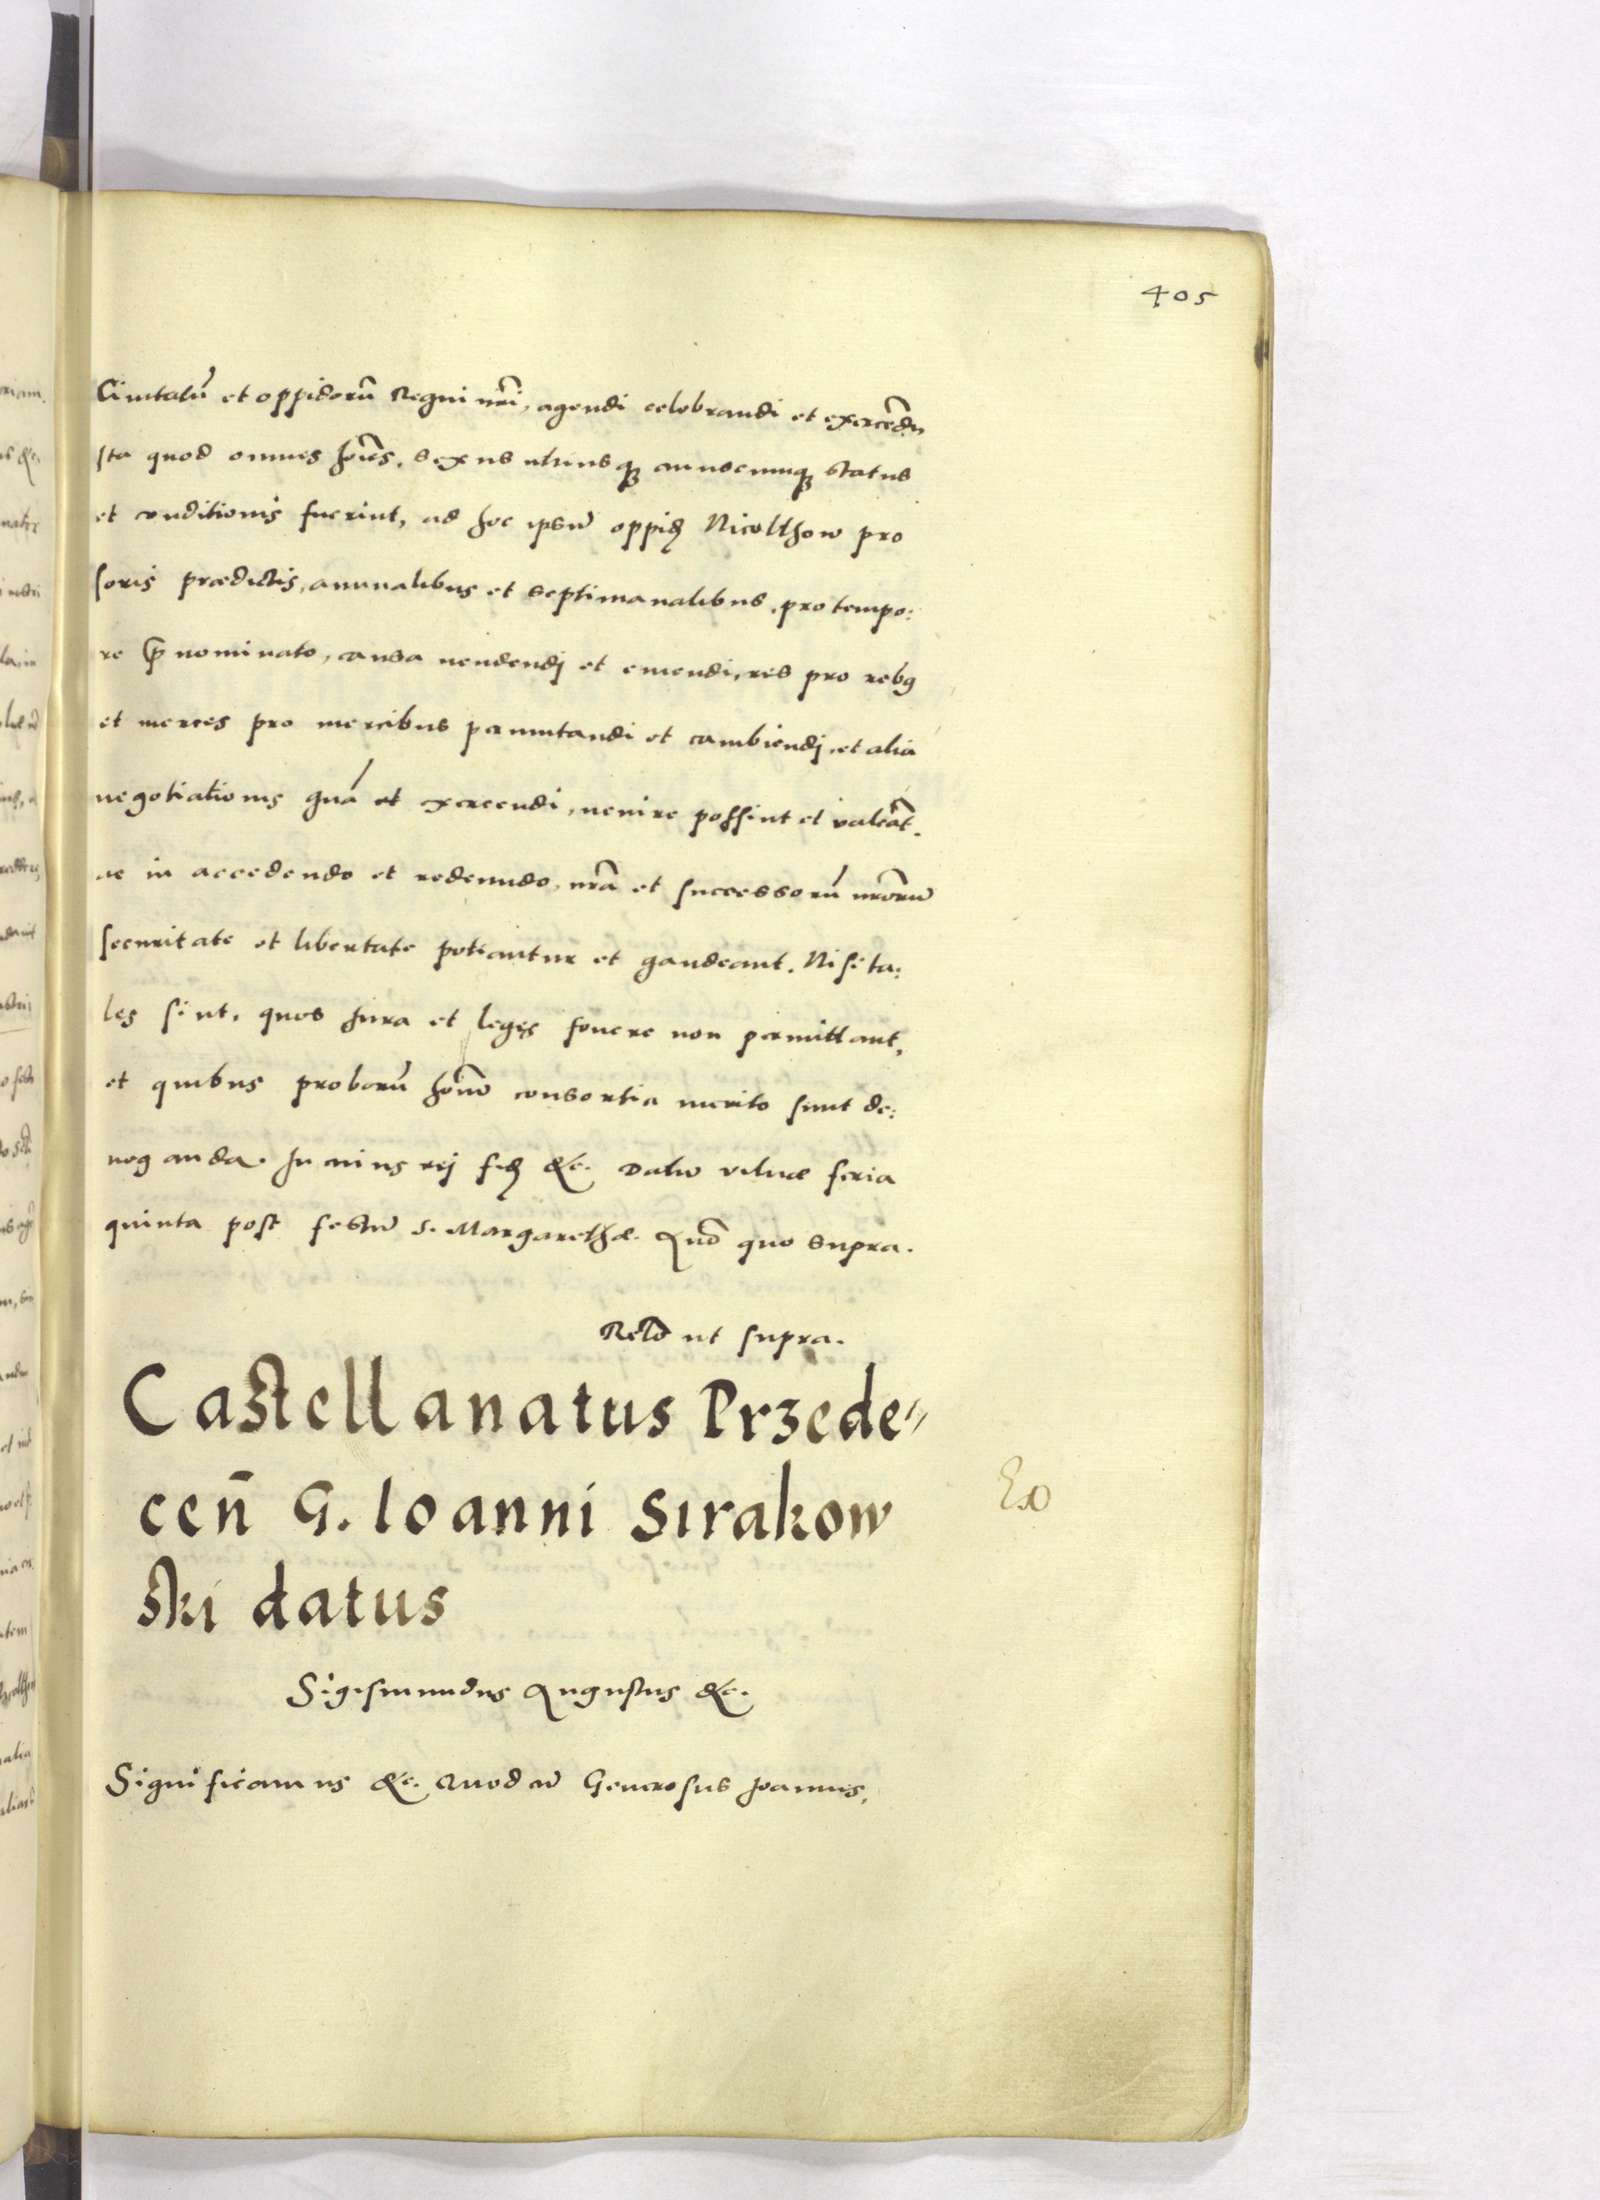 405
Ciuitatu͂ et oppidoru͂ Regni nr͂i, agendi celebrandi et exercẽdi
Ita quod omnes hoı͂es, sexus utriusqꝫ cuiuscunqꝫ status
et conditionis fuerint, ad hoc ipsũ oppidꝫ Nicolthow pro
foris prædictis, annualibus et septimanalibus, pro tempo:
re p̃ nominato, causa uendendj et emendi, res pro rebꝯ
et merces pro mercibus permutandi et cambiendj, et alia
negotiationis gñã et exercendi, uenire possint et valeãt.
ac in accedendo et redeundo, nrã et successorũ nrorũ
securitate et libertate potiantur et gaudeant. Nisi ta:
les sint, quos Jura et leges fouere non permittant,
et quibus proborũ hoı͂ũ consortia merito sunt de:
neganda. In cuius rej fidꝫ &c. Datũ vilnæ feria
quinta post festũ S. Margarethæ. Año quo supra.
Relõ ut supra.
Castellanatus Przede〃
ceñ G. Ioanni Sırakow
Ex
ski datus
Sigismundus Augustus &c.
Significamus &c. Quod cũ Generosus Joannes,